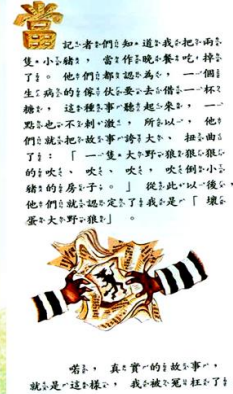 當
記者們知道我把兩
隻小豬，當作晚餐吃掉
了。他們都認為，一個
生病的傢伙要去借一杯
糖，這種事聽起來，一
點也不刺激，所以，他
們就把故事誇大、扭曲
了：「一隻大野狼狠狠
的吹、吹、吹，吹倒小
豬的房子。」從此以後，
他們就認定了我是「壞
蛋大野狼」。
喏，真實的故事，
就是這樣，我被冤枉了